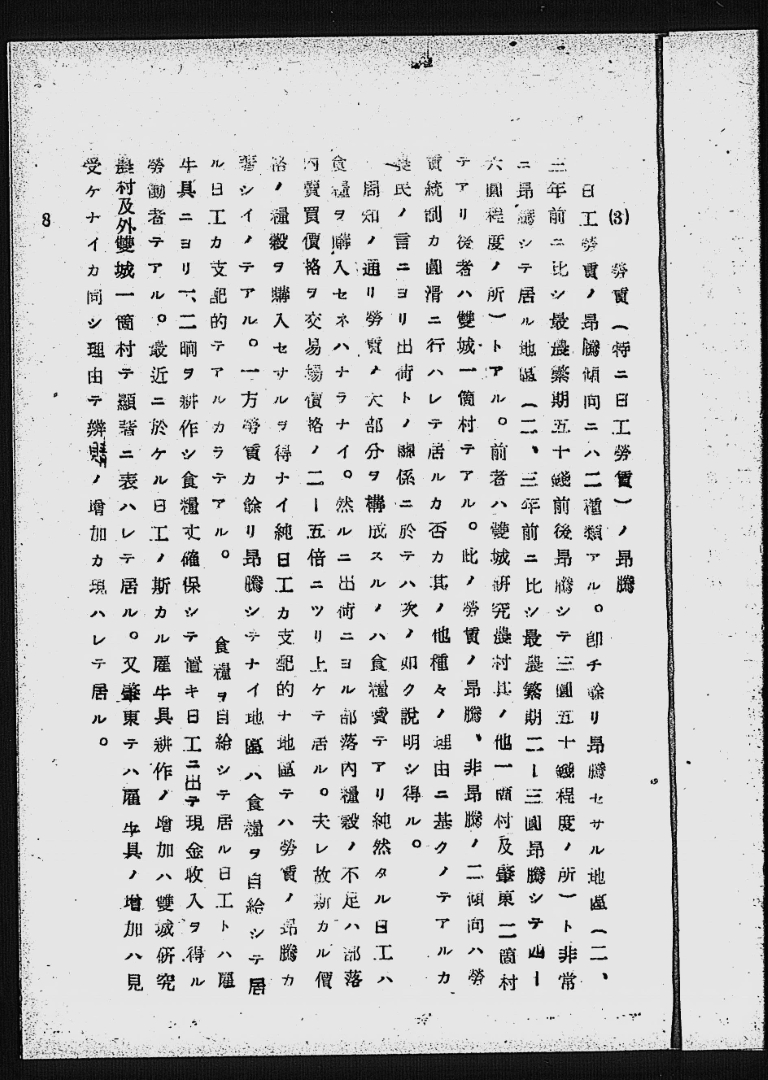 (3) 勞賃(特ニ日工勞賃)ノ昂騰
日工勞賃ノ昂騰傾向ニハ二種類アル。卽チ餘リ昂騰セサル地區(二、
三年前ニ比シ最農繁期五十錢前後昂騰シテ三圓五十錢程度ノ所)ト非常
ニ昂騰シテ居ル地區(二、三年前ニ比シ最農繁期二ー三圓昂騰シテ四ー
六圓程度ノ所)トアル。前者ハ雙城硏究農村其ノ他一箇村及肇東二箇村
テアリ後者ハ雙城一箇村テアル。此ノ勞賃ノ昂騰、非昂騰ノ二傾向ハ勞
賃統制カ圓滑ニ行ハレテ居ルカ否カ其ノ他種々ノ理由ニ基クノテアルカ
農民ノ言ニヨリ出荷トノ關係ニ於テハ次ノ如ク說明シ得ル。
周知ノ通リ勞賃ノ大部分ヲ構成スルノハ食糧費テアリ純然タル日工ハ
食糧ヲ購入セネハナラナイ。然ルニ出荷ニヨル部落內糧穀ノ不足ハ部落
內賣買價格ヲ交易場價格ノ二ー五倍ニツリ上ケテ居ル。夫レ故斯カル價
格ノ糧穀ヲ購入セサルヲ得ナイ純日工カ支配的ナ地區テハ勞賃ノ昂騰カ
著シイノテアル。一方勞賃カ餘リ昂騰シテナイ地區ハ食糧ヲ自給シテ居
ル日工カ支配的テアルカラテアル。 食糧ヲ自給シテ居ル日工トハ雇
牛具ニヨリ一、二晌ヲ耕作シ食糧丈確保シテ置キ日工ニ出テ現金收入ヲ得ル
勞働者テアル。最近ニ於ケル日工ノ斯カル雇牛具耕作ノ增加ハ雙城硏究
農村及外雙城一箇村テ顯著ニ表ハレテ居ル。又肇東テハ雇牛具ノ增加ハ見
受ケナイカ同シ理由テ辮睛ノ增加カ現ハレテ居ル。
8